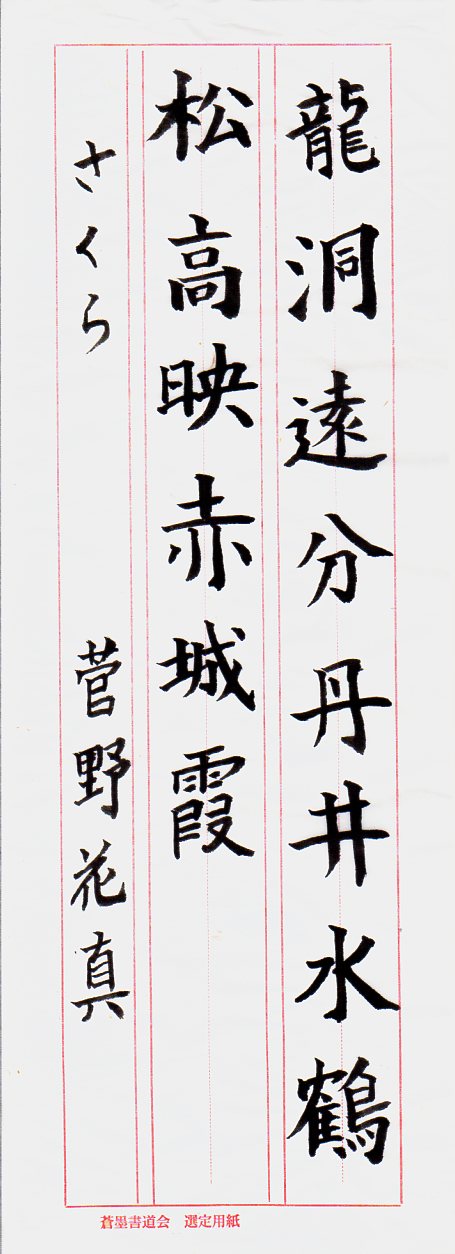 龍洞遠分丹井水鶴
松高映赤城霞
さくら 菅野花真
蒼墨書道会 選定用紙